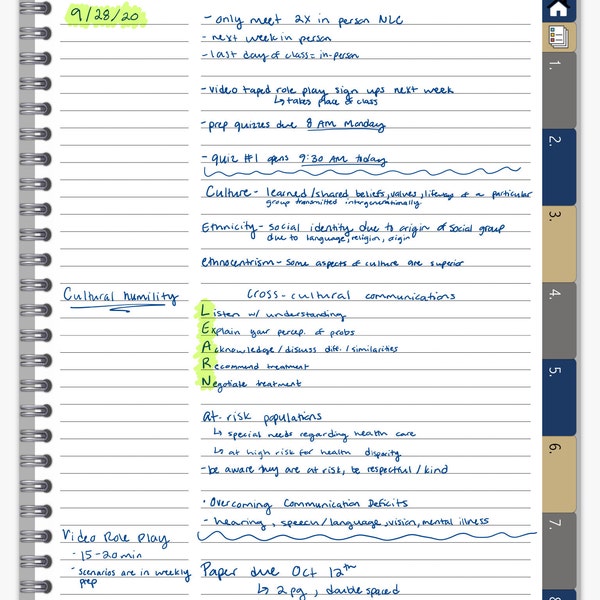 9/28/20
- only meet 2x in person NLC
- next week in person
- last day of class = in-person
- video taped role play sign ups next week
↳ takes place of class
- prep quizzes due 8 AM Monday
- quiz #1 opens 9:30 AM today
Culture - learned/shared beliefs, values, lifeway of a particular
group transmitted intergenerationally.
Ethnicity - social identity due to origin of social group
due to language, religion, origin
ethnocentrism - some aspects of culture are superior
Cultural humility
Cross-cultural communications
Listen w/ understanding
Explain your percep. of probs
Acknowledge/discuss diff./similarities
Recommend treatment
Negotiate treatment
at-risk populations
↳ special needs regarding health care
↳ at high risk for health disparity
- be aware they are at risk, be respectful/kind
• Overcoming Communication Deficits
- hearing, speech/language, vision, mental illness
Video Role Play
- 15-20 min
- scenarios are in weekly
prep
Paper due Oct 12th
↳ 2 pg, double spaced
1.
2.
3.
4.
5.
6.
7.
8.